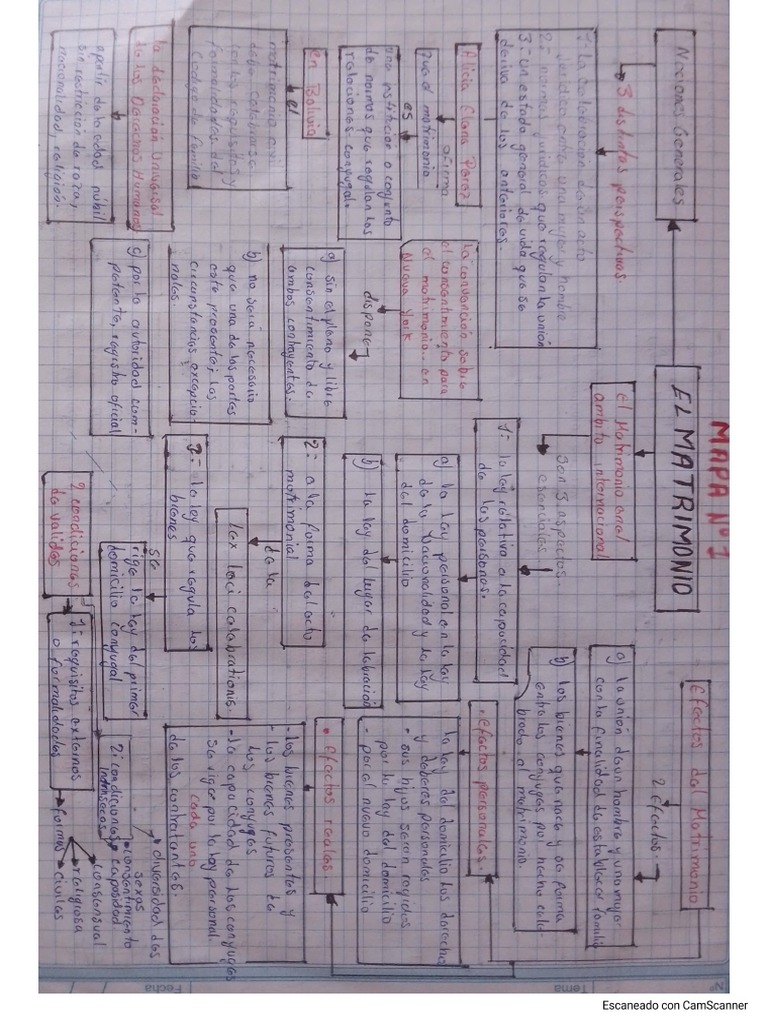 MAPA Nº 1
EL MATRIMONIO
Nociones Generales
3 distintas perspectivas.
1.- la celebración de un acto
jurídico entre una mujer y hombre
2.- normas jurídicas que regulan la unión
3.- un estado general de vida que se
deriva de los anteriores.
Alicia Elena Perez
afirma
que el matrimonio
es
una institucion o conjunto
de normas que regulan las
relaciones conyugal.
en Bolivia
el
matrimonio civil
debe celebrarse
con los requisitos y
formalidades del
Codigo de familia
la declaración Universal
de los Derechos Humanos
apartir de la edad núbil
sin restricción de raza,
nacionalidad, religión.
la convención sobre
el consentimiento para
el matrimonio.. en
Nueva York
dispone
a) sin el pleno y libre
consentimiento de
ambos contrayentes.
b) no será necesario
que una de las partes
este presente, las
circunstancias excepcio-
nales.
c) por la autoridad com-
petente, registro oficial
el Matrimonio en el
ambito internacional
son 3 aspectos
esenciales
1.- la ley relativa a la capacidad
de las personas.
a) la ley personal en la ley
de la nacionalidad y la ley
del domicilio
b) la ley del lugar de lebración
2.- a la forma del acto
matrimonial
de la
Lex loci celebrationis.
3.- la ley que regula los
bienes
se
rige la ley del primer
domicilio conyugal
2 condiciones
de validez
1.- requisitos externos
o formalidades
formas
civiles
religiosa
consensual
2.- condiciones
intrínsecas
capacidad
consentimiento
diversidad de
sexos
Efectos del Matrimonio
2 efectos.
a) la unión de un hombre y una mujer
con la finalidad de establecer familia
b) los bienes que nace y se forma
entre los conyuges por hecho cele-
brado el matrimonio.
• efectos personales.
la ley del domicilio los derecho
y deberes personales
- sus hijos seran regidos
por la ley del domicilio
- por el nuevo domicilio
• efectos reales
- los bienes presentes y
- los bienes futuros de
los conyuges
- la capacidad de los conyuges
se rige por la ley personal.
cada uno
de los contratantes.
Nº
Tema
Fecha
Escaneado con CamScanner